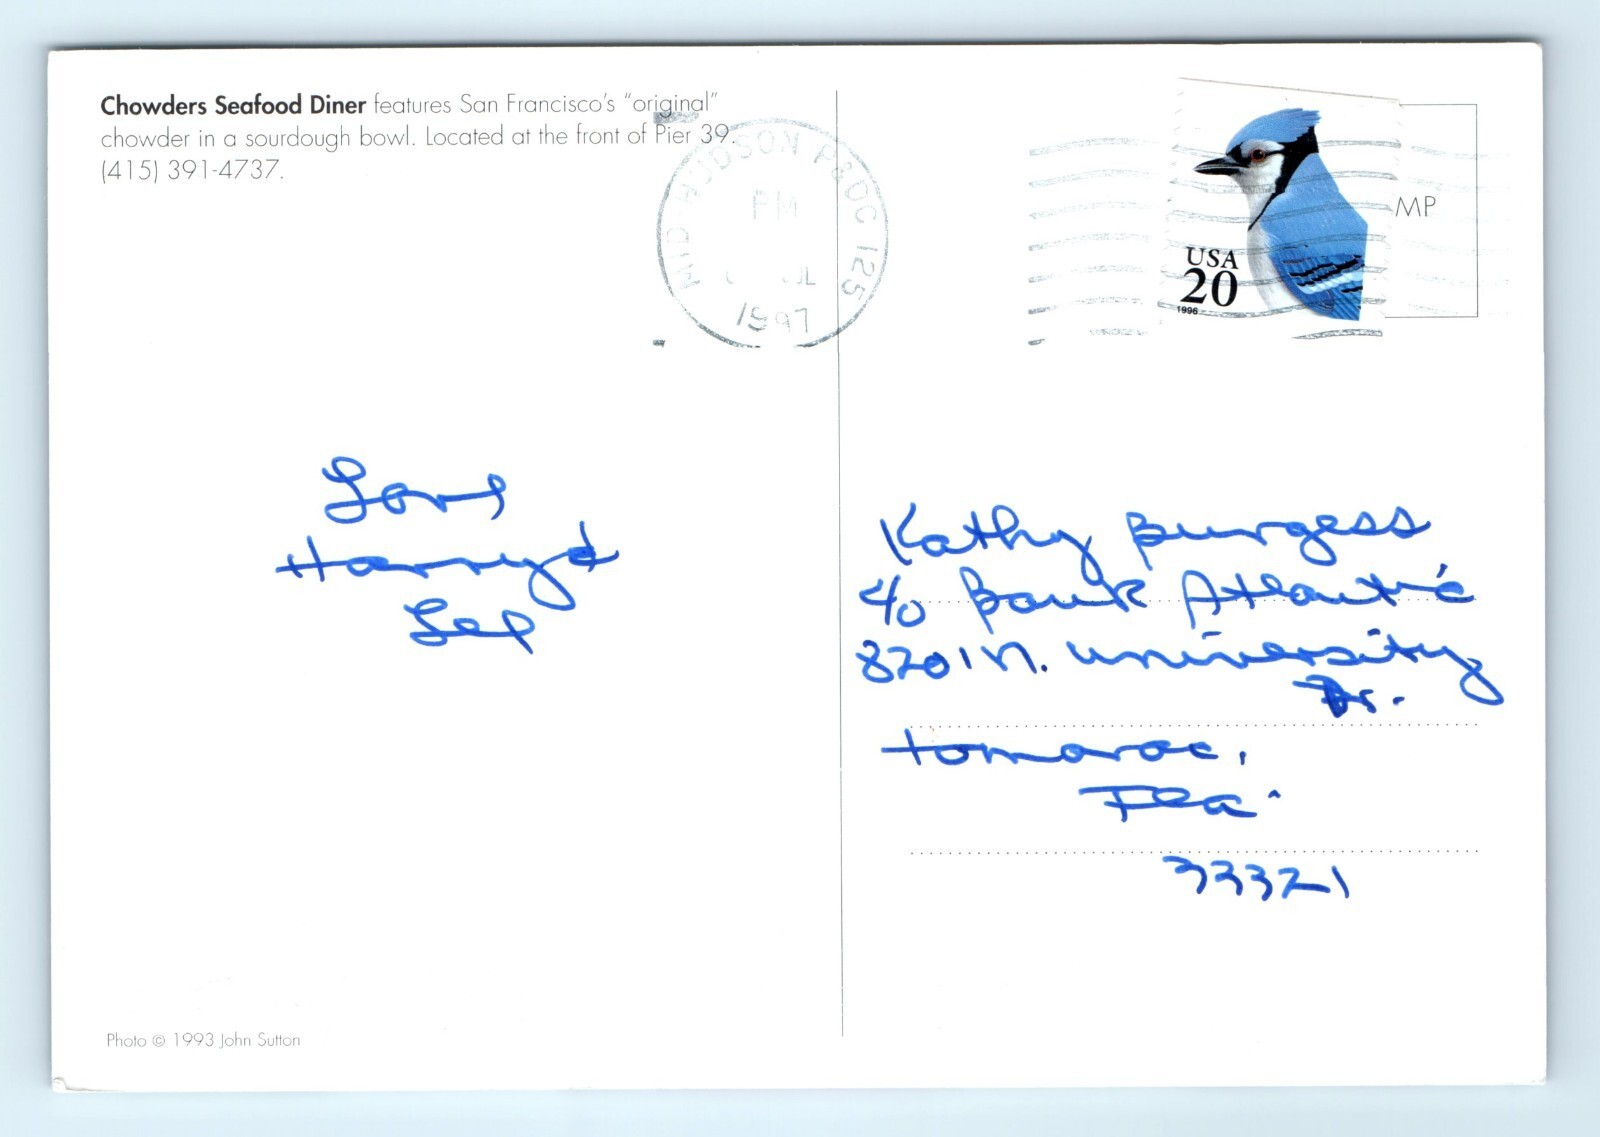 Chowders Seafood Diner features San Francisco's "original"
chowder in a sourdough bowl. Located at the front of Pier 39.
(415) 391-4737.
MID-HUDSON P&DC 125
PM
JL
1997
USA
20
1996
MP
Love
Harry &
Lee
Kathy Burgess
c/o Bank Atlantic
8201 N. University
Dr.
tomarac,
Fla.
33321
Photo © 1993 John Sutton